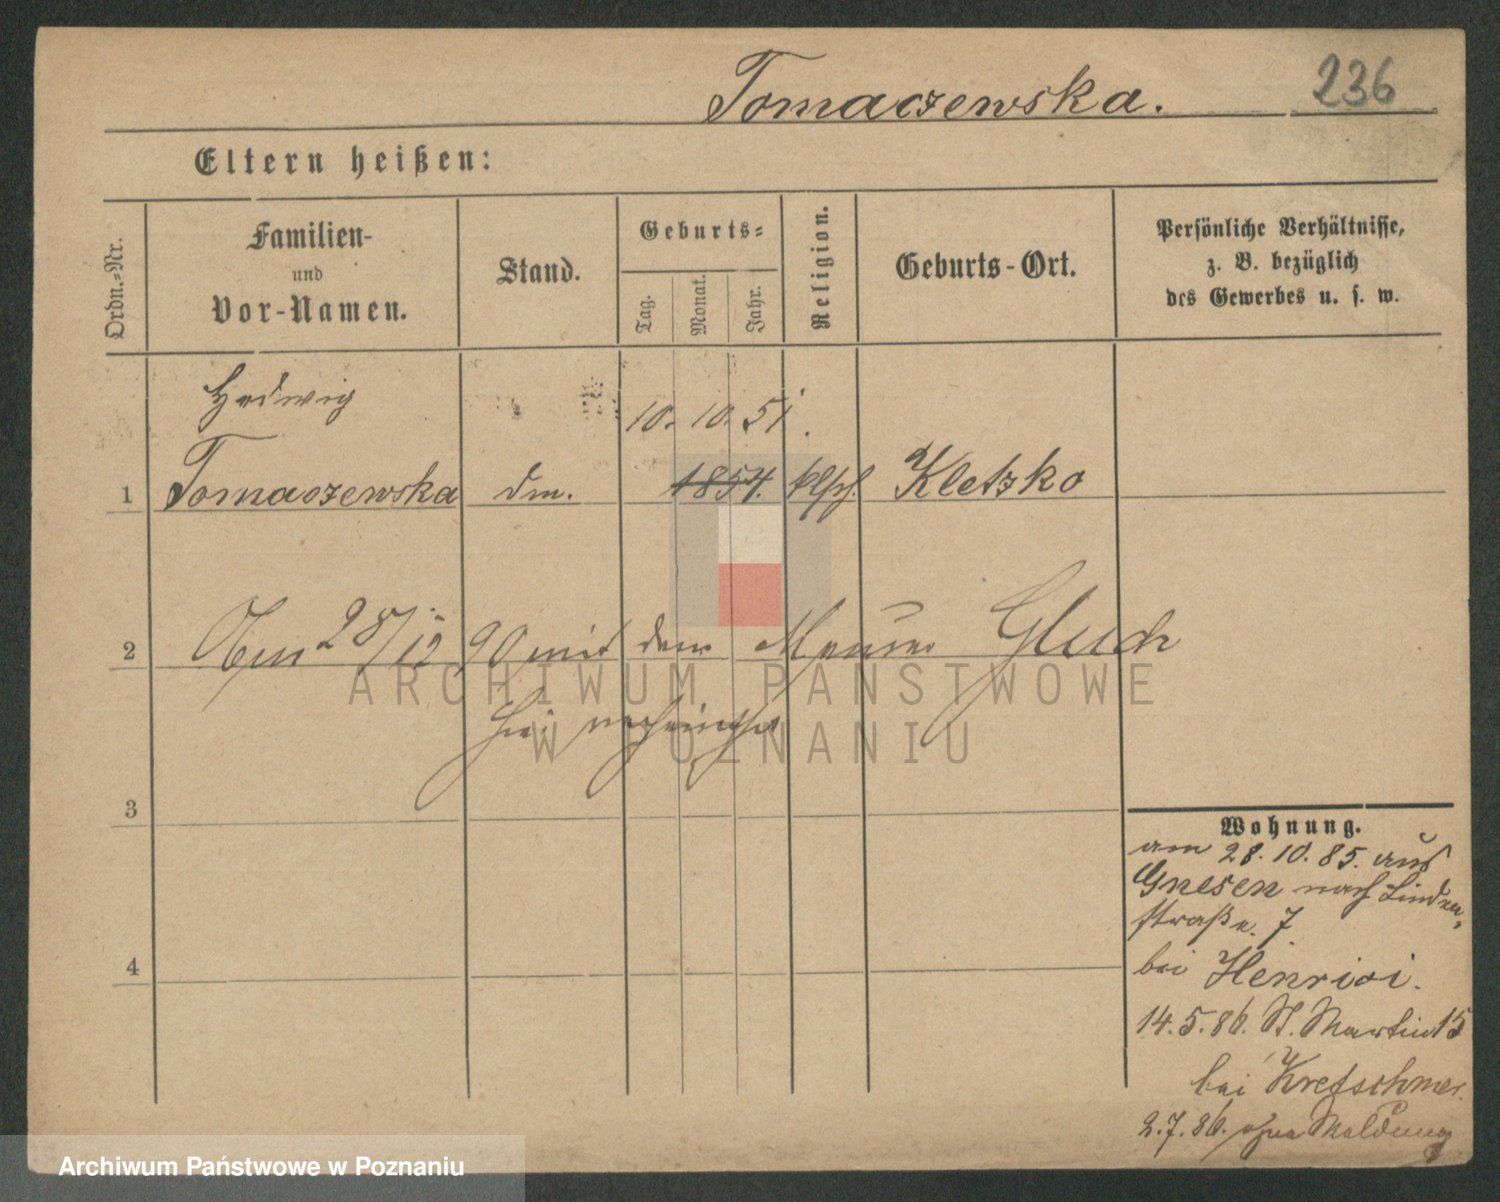 Tomaczewska.
236
Eltern heißen:
Ordn.-Nr.
Familien-
und
Vor-Namen.
Stand.
Geburts-
Tag.
Monat.
Jahr.
Religion.
Geburts-Ort.
Persönliche Verhältnisse,
z. B. bezüglich
des Gewerbes u. s. w.
Hedwig
10. 10. 51.
1 Tomaczewska 1854. Kletzko
2 Am 28/12 90 mit dem Maurer Gluch
hier verheirathet
3
4
Wohnung.
am 28. 10. 85. aus
Gnesen nach Linden-
straße. 7
bei Henrici.
14. 5. 86. St. Martin 15
bei Kretschmer.
2. 7. 86. ohne Meldung
ARCHIWUM PAŃSTWOWE
W POZNANIU
Archiwum Państwowe w Poznaniu